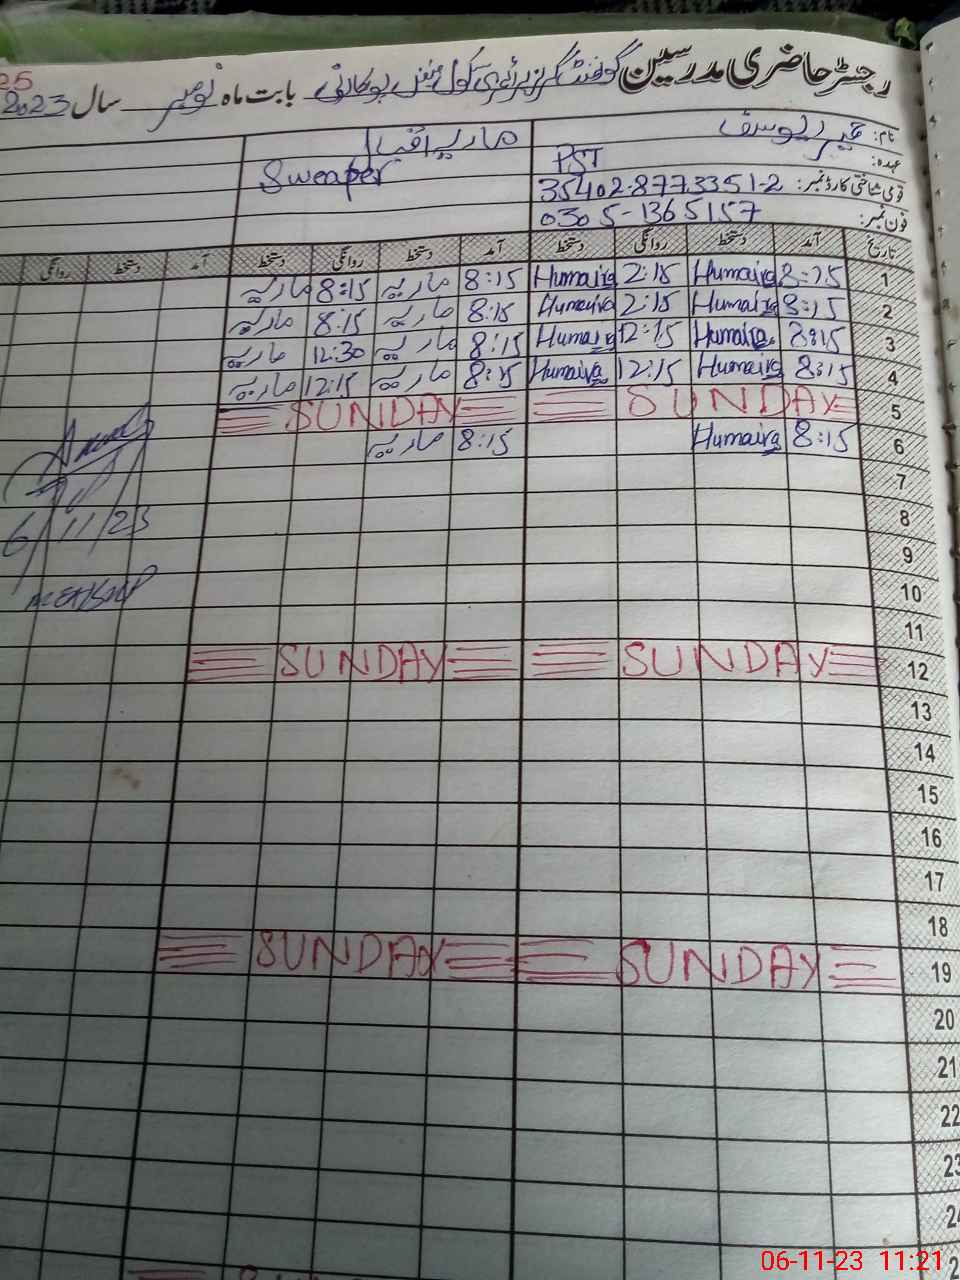 رجسٹر حاضری مدرسین گورنمنٹ گرلز پرائمری سکول بابت ماہ نومبر سال 2023
نام: حمیرا یوسف ماریہ
عہدہ: PST Sweaper
قومی شناختی کارڈ نمبر: 35402-8773351-2
فون نمبر: 0305-1365157
تاریخ آمد دستخط روانگی دستخط آمد دستخط روانگی دستخط آمد دستخط روانگی
1 8:15 Humaira 2:15 Humaira 8:15 ماریہ 8:15 ماریہ
2 8:15 Humaira 2:15 Humaira 8:15 ماریہ 8:15 ماریہ
3 8:15 Humaira 12:15 Humaira 8:15 ماریہ 12:30 ماریہ
4 8:15 Humaira 12:15 Humaira 8:15 ماریہ 12:15 ماریہ
5 SUNDAY SUNDAY
6 8:15 Humaira 8:15 ماریہ
7
8
6/11/23
9
10
11
12 SUNDAY SUNDAY
13
14
15
16
17
18
19 SUNDAY SUNDAY
20
21
22
23
24
06-11-23 11:21